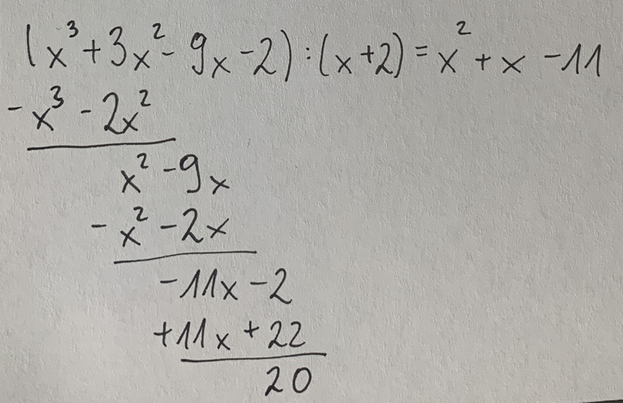 (x³+3x²-9x-2):(x+2)=x²+x-11
-x³-2x²
x²-9x
-x²-2x
-11x-2
+11x+22
20